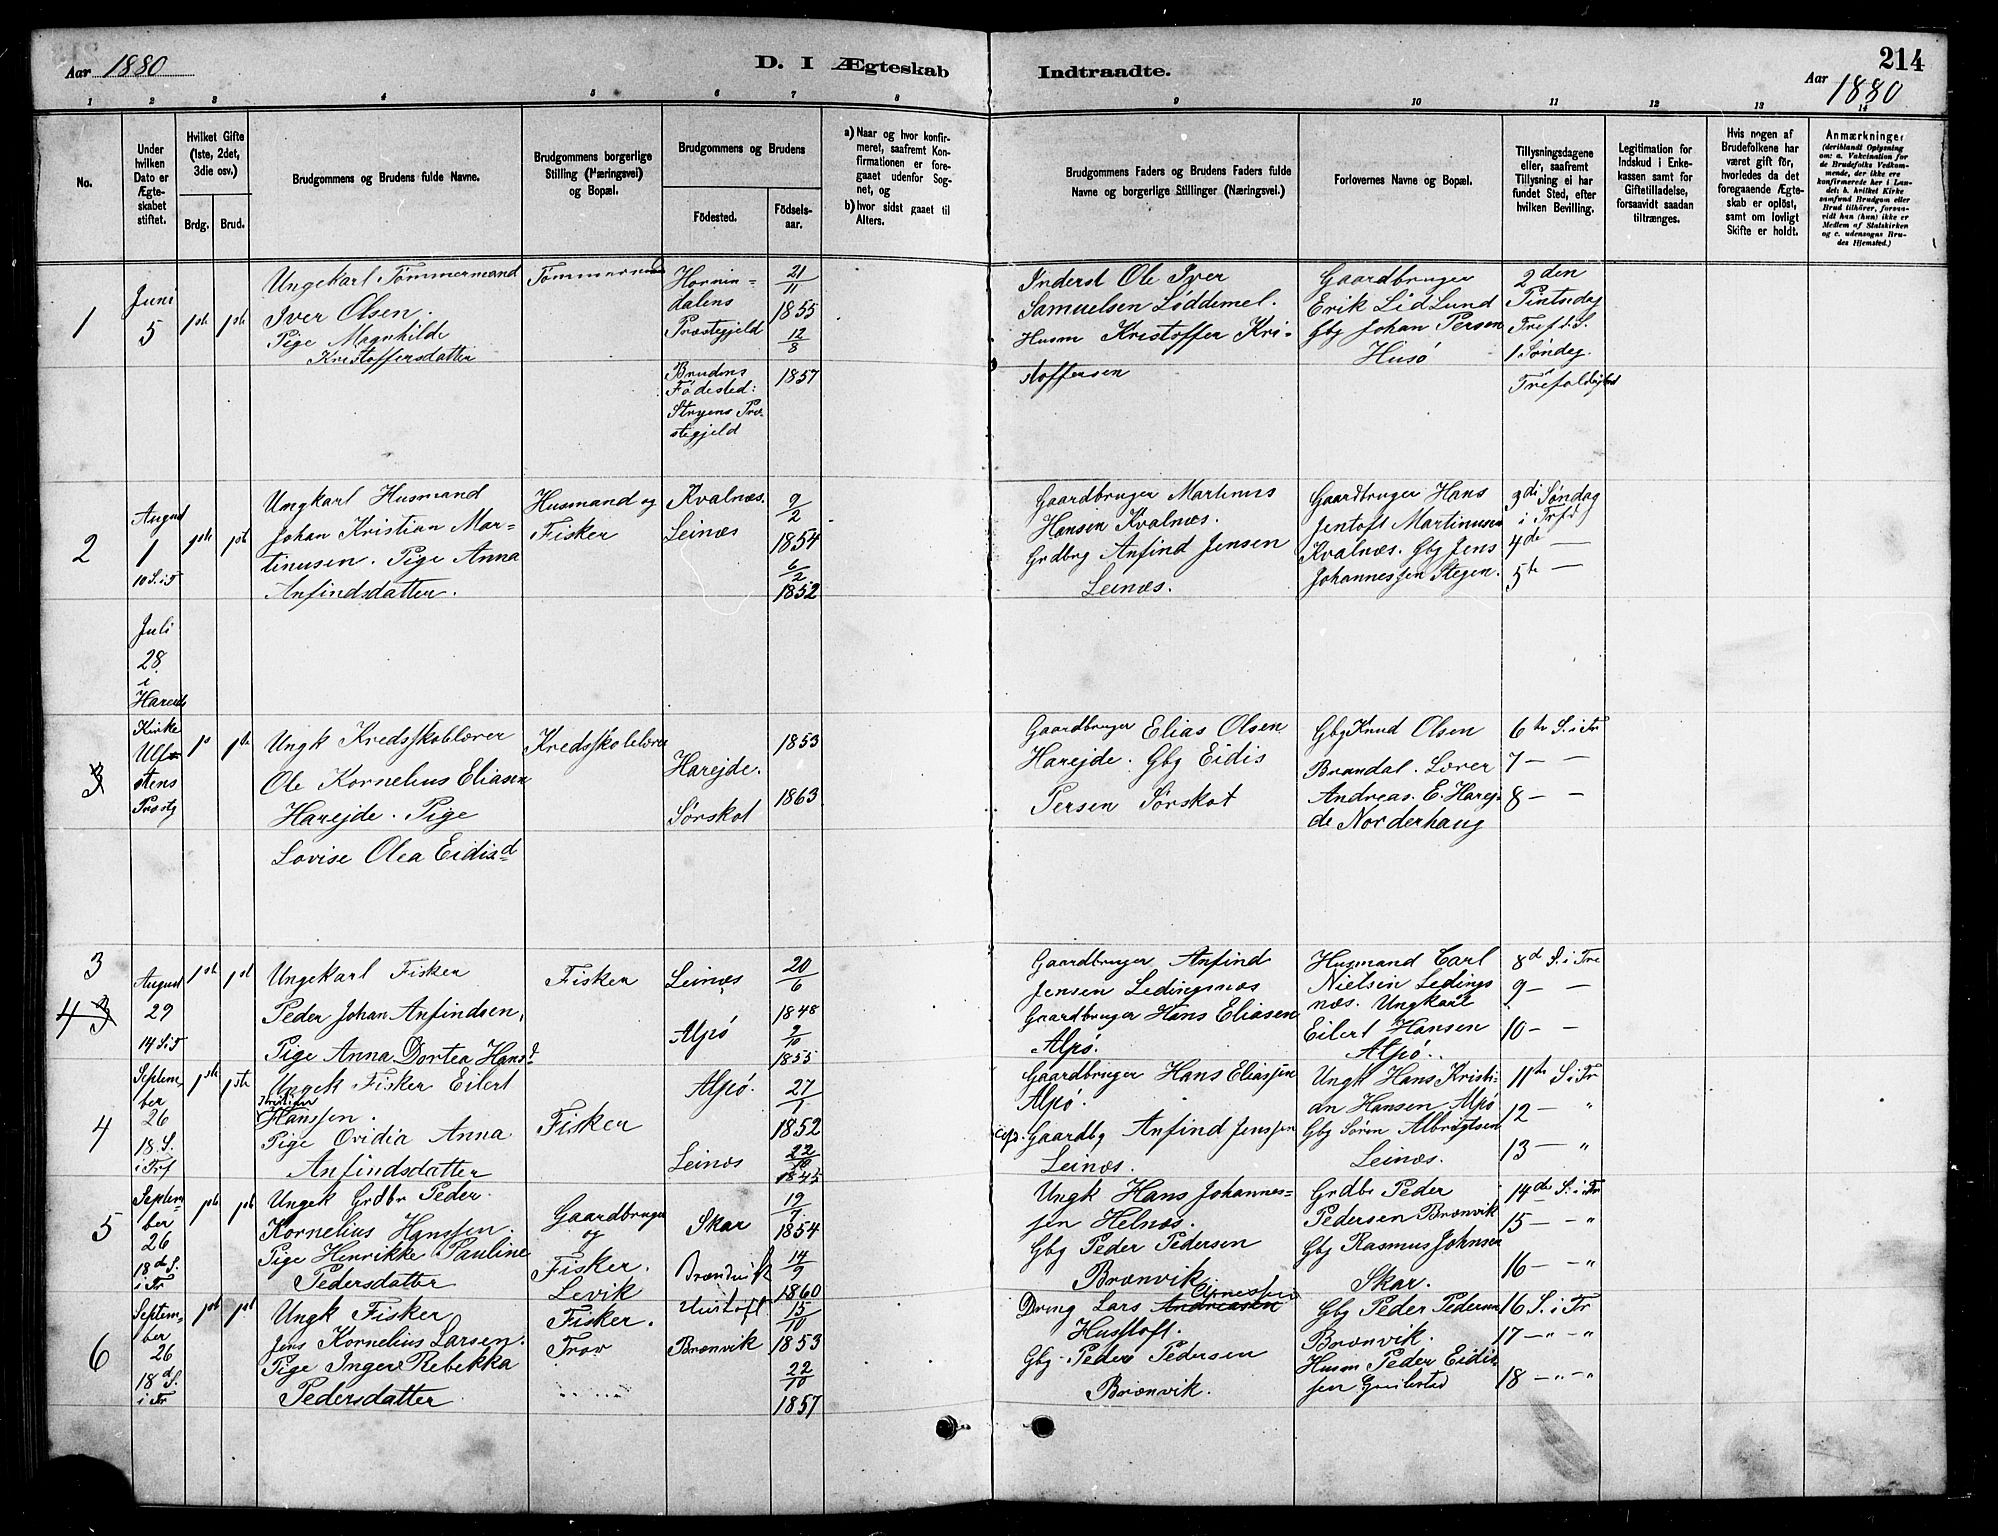 Aar 1880
D. I Ægteskab Indtraadte.
214
Aar 1880
1 2 3 4 5 6 7 8 9 10 11 12 13 14
No.
Under hvilken Dato er Ægteskabet stiftet.
Hvilket Gifte (1ste, 2det, 3die osv.)
Brdg. Brud.
Brudgommens og Brudens fulde Navne.
Brudgommens borgerlige Stilling (Næringsvei) og Bopæl.
Brudgommens og Brudens
Födested.
Födselsaar.
a) Naar og hvor konfirmeret, saafremt Konfirmationen er foregaaet udenfor Sognet, og
b) hvor sidst gaaet til Alters.
Brudgommens Faders og Brudens Faders fulde Navne og borgerlige Stillinger (Næringsvei.)
Forlovernes Navne og Bopæl.
Tillysningsdagene eller, saafremt Tillysning ei har fundet Sted, efter hvilken Bevilling.
Legitimation for Indskud i Enkekassen samt for Giftetilladelse, forsaavidt saadan tiltrænges.
Hvis nogen af Brudefolkene har været gift för, hvorledes da det foregaaende Ægteskab er oplöst, samt om lovligt Skifte er holdt.
Anmærkninger (deriblandt Oplysning om: a. Vakcination for de Brudefolks Vedkommende, der ikke ere konfirmerede her i Landet; b. hvilket Kirkesamfund Brudgom eller Brud tilhörer, forsaavidt han (hun) ikke er Medlem af Statskirken og c. udensogns Brudes Hjemsted.)
1
Juni
5
1ste 1ste
Ungekarl Tömmermand
Iver Olsen.
Pige Magnhilde
Kristoffersdatter
Tömmermand
Hornindalens
Præstegjeld
Brudens
Födested:
Stryens Præstegjeld
21/11
1855
12/8
1857
Inderst Ole Iver
Samuelsen Löddemel.
Husm Kristoffer Kristoffersen
Gaardbruger
Erik Lid Lund
Gbg Johan Persen
Husö
2den
Pintsedag
Tref. d. S.
1 Söndag
Trefoldighed
2
August
1
10 S. i T
1ste 1ste
Ungkarl Husmand
Johan Kristian Martinusen. Pige Anna
Anfindsdatter.
Husmand og
Fisker
Kvalnæs.
Leinæs
9/2
1854
6/2
1852
Gaardbruger Martinus
Hansen Kvalnæs.
Grdbrg Anfind Jensen
Leinæs.
Gaardbruger Hans
Jentoft Martinusen
Kvalnæs. Gbg Jens
Johannessen Stegen.
3di Söndag
i Trfd
4de —
5te —
Juli
28
i
Hareids
Kirke
Ulfstens
Præstg
3
1ste 1ste
Ungk Kredsskolelærer
Ole Kornelius Eliasen
Harejde. Pige
Lovise Olea Eidisd
Kredsskolelærer
Harejde.
Sörskot
1853
1863
Gaardbruger Elias Olsen
Harejde. Gbg Eidis
Persen Sörskot
Gbg Knud Olsen
Brandal. Lærer
Andreas. E. Harejde Norderhaug
6te S. i Tr
7 — —
8 — —
3
4 3
August
29
14 S. i T
1ste 1ste
Ungekarl Fisker
Peder Johan Anfindsen,
Pige Anna Dortea Hansd
Fisker
Leinæs
Alpö
20/6
1848
9/10
1855
Gaardbruger Anfind
Jensen Ledingsnæs
Gaardbruger Hans Eliasen
Alpö.
Husmand Carl
Nielsen Ledingsnæs. Ungkarl
Eilert Hansen
Alpö.
8d S. i Tre
9 — —
10 — —
4
September
26
18. S.
i Trf
1ste 1ste
Ungek Fisker Eilert
Kristian
Hanssen.
Pige Ovidia Anna
Anfindsdatter
Fisker
Alpö.
Leinæs
27/1
1852
22/10
1845
Gaardbruger Hans Eliassen
Alpö.
Gaardbg Anfind Jenssen
Leinæs.
Ungk Hans Kristian Hansen Alpö
Gbg Sören Albrigtsen
Leinæs.
11te S. i Tr
12 — "
13 — "
5
September
26
18de S.
i Tr
1ste 1ste
Ungek Grdbr Peder
Kornelius Hanssen.
Pige Henrikke Pauline
Pedersdatter
Gaardbruger
og
Fisker.
Levik
Skar
Brændvik
19/7
1854
14/9
1860
Ungk Hans Johannessen Helnæs.
Gbg Peder Pedersen
Brænvik
Grdbr Peder
Pedersen Brænvik
Gbg Rasmus Johnsen
Skar.
14de S. i Tr
15 — — "
16 — — "
6
September
26
18d S.
i Tr
1ste 1ste
Ungk Fisker
Jens Kornelius Larsen.
Pige Inger Rebekka
Pedersdatter
Fisker.
Trov
Hustoft
Brænvik
15/10
1853
22/10
1857
Dreng Lars Andreasen Arnessen
Husstoft.
Gbg. Peder Pedersen
Brænvik.
Gbg Peder Pedersen
Brænvik.
Husm Peder Eidissen
16 S. i Tr
17 — " — "
18 — " — "